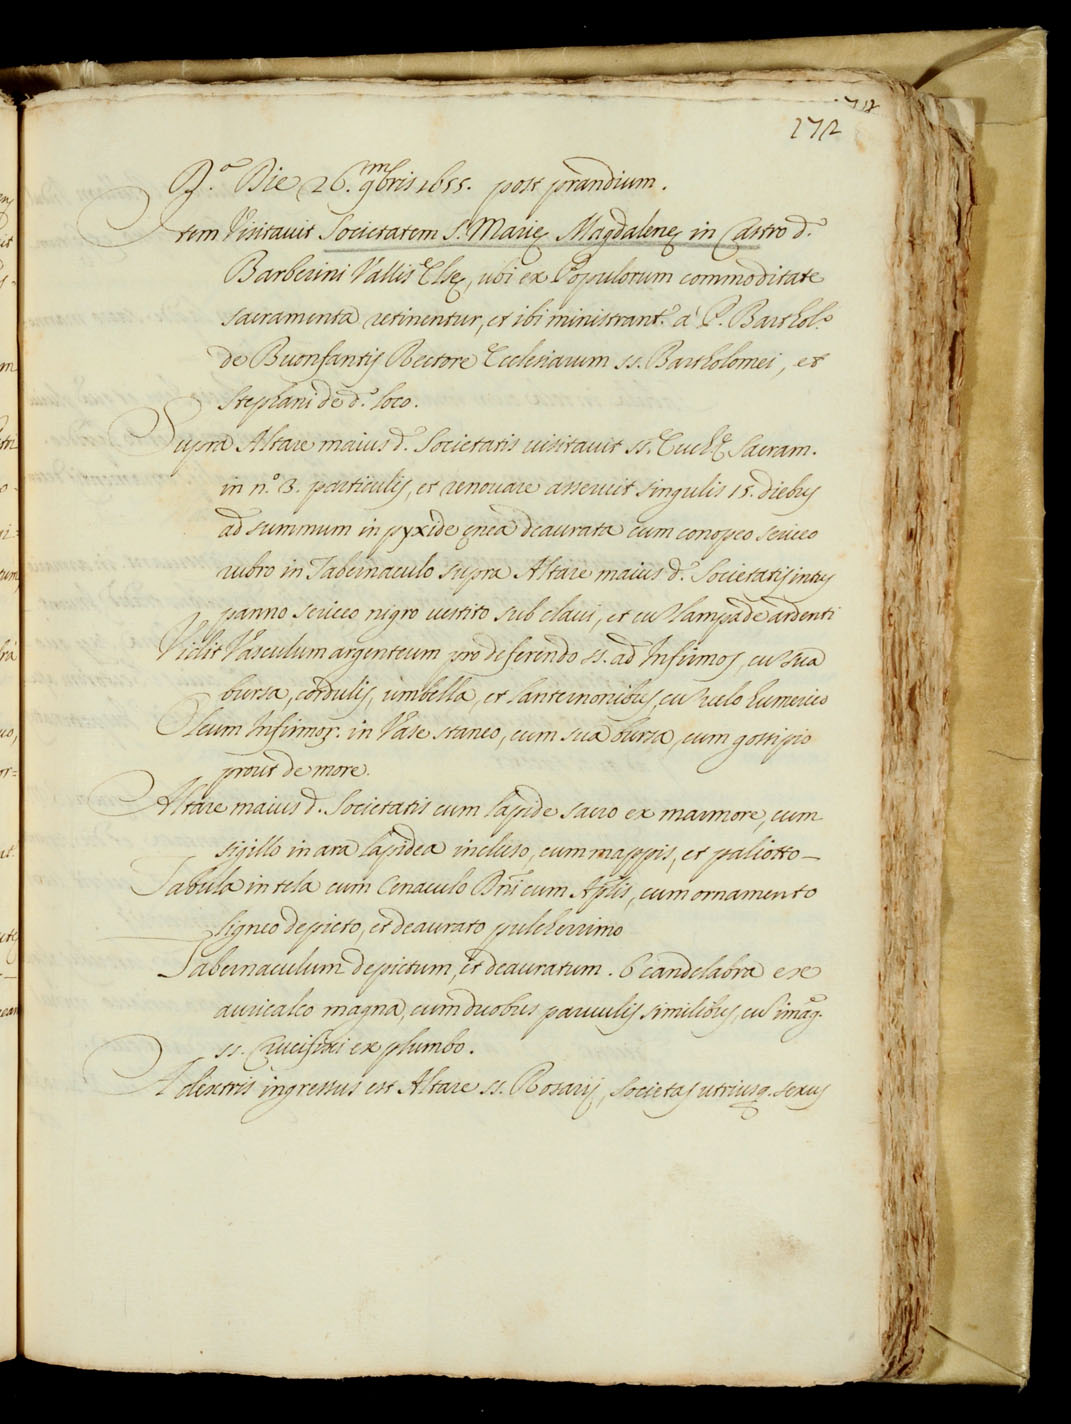 712
272
D.ª Die 26. 9mbris 1655. post prandium.
Item Visitavit Societatem S. Marię Magdalenę in Castro d.º
Barberini Vallis Elsę, ubi ex Populorum commoditate
sacramenta retinentur, et ibi ministrant.r à P. Barthol.º
de Buonfantij Rectore Ecclesiarum SS. Bartholomei, et
Stephani de d.º loco.
Supra Altare maius d.ę Societatis visitavit SS. Euch.ę Sacram.
in n.º 3. particulis, et renovare asseruit singulis 15. diebus
ad summum in pyxide ęnea deaurata cum conopeo sericeo
rubro in Tabernaculo supra Altare maius d.ę Societatis intus
panno sericeo nigro vestito sub clavi, et cū lampade ardenti
Vidit Vasculum argenteum pro deferendo SS. ad Infirmos, cū sua
bursa, cordulis, umbella, et lanternonibus, cū velo humerico
Oleum Infirmor. in Vase staneo, cum sua bursa, cum gossipio
prout de more.
Altare maius d. Societatis cum lapide sacro ex marmore, cum
sigillo in ara lapidea incluso, cum mappis, et paliotto –
Tabula in tela cum Cenaculo Dñi cum Aplis, cum ornamento
ligneo depicto, et deaurato pulcherrimo
Tabernaculum depictum, et deauratum. 6 candelabra ex
auricalco magna, cum duobus parvulis similibus, cū imag.e
SS. Crucifixi ex plumbo.
A dextris ingressus est Altare SS. Rosarij, Societas utriusq. sexus